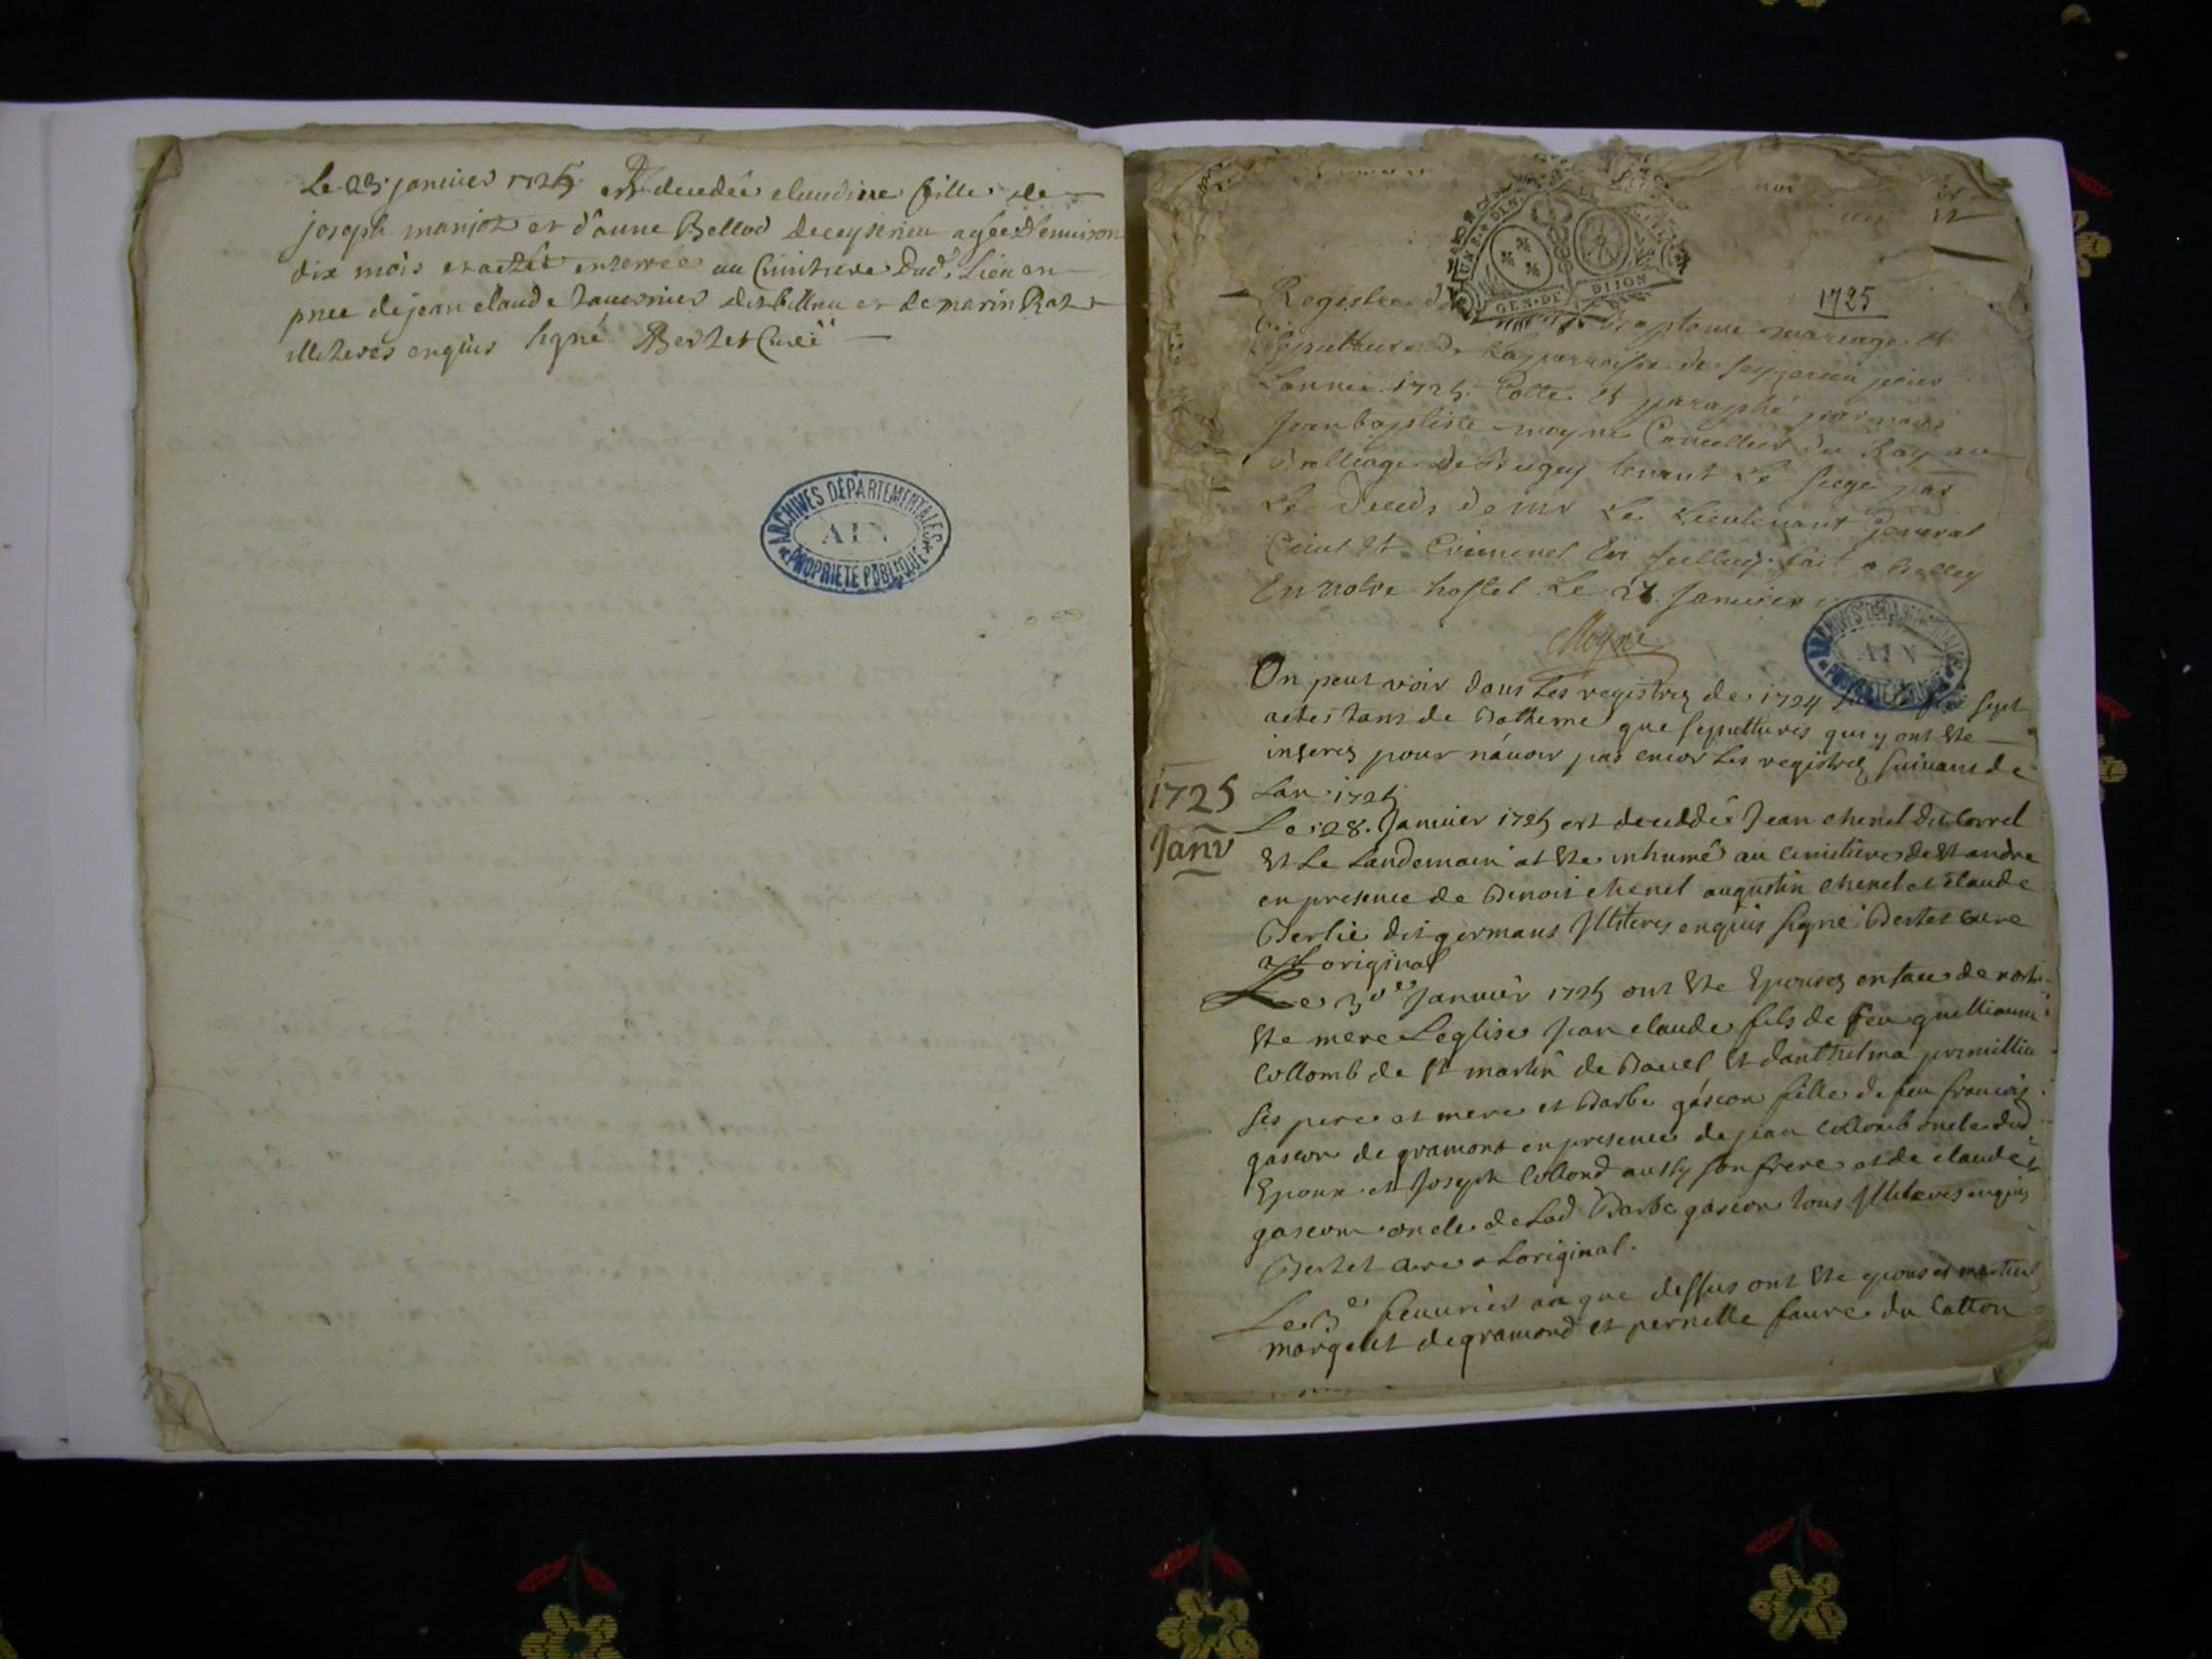 Le 23 janvier 1725 est decedée claudine fille de
joseph marjot et d'anne Bellod de ceyserieu agée d'environ
dix mois et a etée enterrée au Cimitiere Dud. Lieu en
pnce de jean claude tavernier dit billieu et de marin Rat
illiteres enquis signé Bertet Curé
ARCHIVES DÉPARTEMENTALES
AIN
PROPRIÉTÉ PUBLIQUE
GEN. DE DIJON
1725
Registre de bapteme mariage et
sepulture de la parroisse de seyzerieu pour
Lannée 1725. Cotté et paraphé par nous
Jean baptiste moyne Conseiller du Roy au
Balliage de Bugey tenant Le siege par
Le deceds de mr Le Lieutenant general
Civil et Criminel En fait a belley
En notre hostel Le 27. Janvier
Moyne
ARCHIVES DÉPARTEMENTALES
AIN
On peut voir dans Les registres de 1724 sept
actes tant de Batheme que sepultures qui y ont ete
inserez pour n'avoir pas encor Les registres suivans de
Lan 1725
1725
Janv
Le 28. Janvier 1725 est deceddé Jean chenel dit Correl
Et Le Landemain at ete inhumé au cimitiere de st andre
en presence de Benoit chenel augustin chenel et claude
Berlie dit germans Illiteres enquis signé Bertet cure
a l'original
Le Janvier 1725 ont ete Epousez en face de notre
ste mere Leglise Jean claude fils de feu guilliaume
Collomb de st martin de Bavel et danthelma premillieu
ses pere et mere et Barbe gascon fille de feu francois
gascon de gramont en presence de jean Collomb oncle dud
Epoux et Joseph Collond aussy son frere et de claude
gascon oncle de Lad Barbe gascon tous Illiteres enquis
Bertet Cure a Loriginal.
Le 3e feuvrier an que dessus ont ete epouses martin
margelet de gramond et pernette faure du Catton